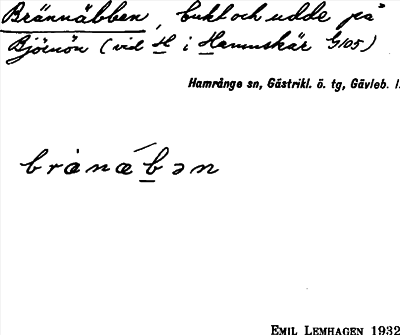 Brännäbben, bukt och udde på
Björnön (vid H i Hamnskär G105)
Hamrånge sn, Gästrikl. ö. tg, Gävleb. l.
brànǽbən
EMIL LEMHAGEN 1932